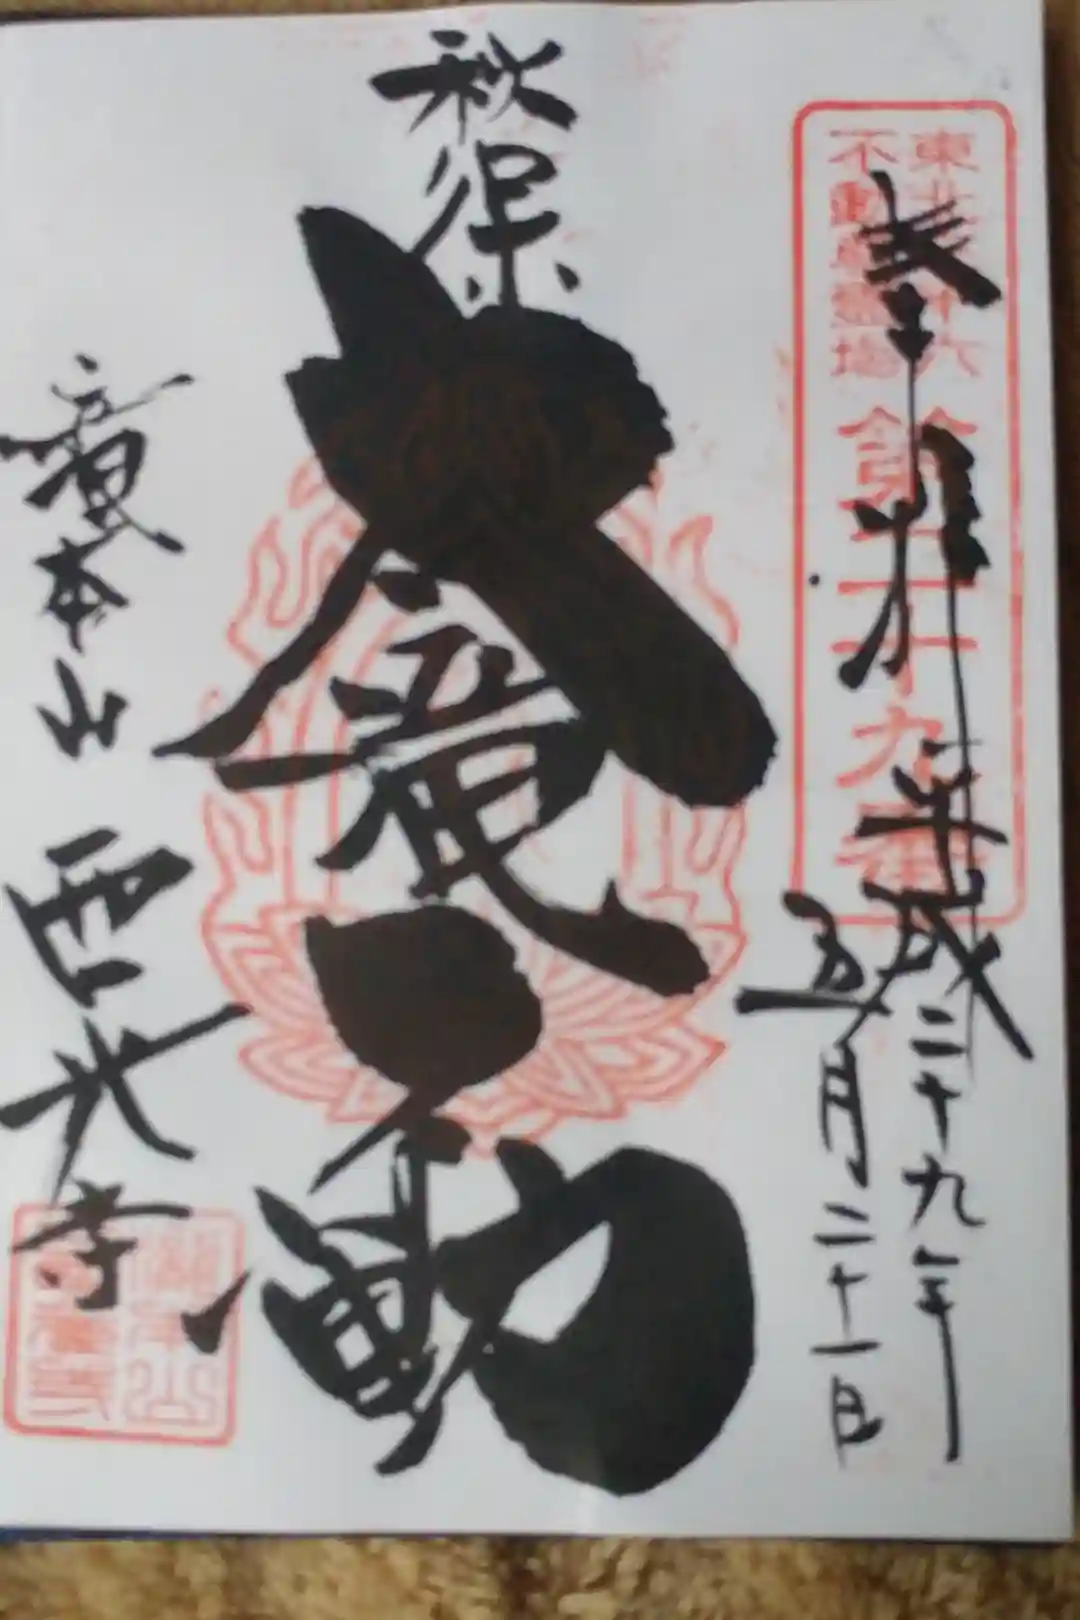 東北三十六
不動尊霊場
第二十九番
奉拝
平成二十九年
五月二十一日
秋保
大瀧不動
瀧本山 西光寺